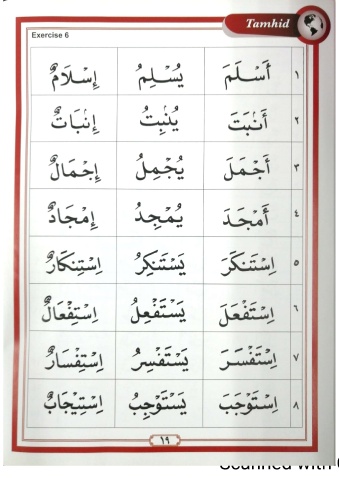 Tamhid
Exercise 6
١ أَسْلَمَ يُسْلِمُ إِسْلَامٌ
٢ أَنْبَتَ يُنْبِتُ إِنْبَاتٌ
٣ أَجْمَلَ يُجْمِلُ إِجْمَالٌ
٤ أَمْجَدَ يُمْجِدُ إِمْجَادٌ
٥ اِسْتَنْكَرَ يَسْتَنْكِرُ اِسْتِنْكَارٌ
٦ اِسْتَفْعَلَ يَسْتَفْعِلُ اِسْتِفْعَالٌ
٧ اِسْتَفْسَرَ يَسْتَفْسِرُ اِسْتِفْسَارٌ
٨ اِسْتَوْجَبَ يَسْتَوْجِبُ اِسْتِيْجَابٌ
١٩
Scanned with